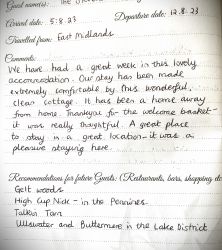 Guest name(s): The
Arrival date: 5.8.23 Departure date: 12.8.23
Travelled from: East Midlands
Comments:
We have had a great week in this lovely
accommodation. Our stay has been made
extremely comfortable by this wonderful,
clean cottage. It has been a home away
from home. Thankyou for the welcome basket-
it was really thoughtful. A great place
to stay in a great location - it was a
pleasure staying here.
Recommendations for future Guests: (Restaurants, bars, shopping etc
Gelt woods
High Cup Nick - in the Pennines.
Talkin Tarn
Ullswater and Buttermere in the Lake District